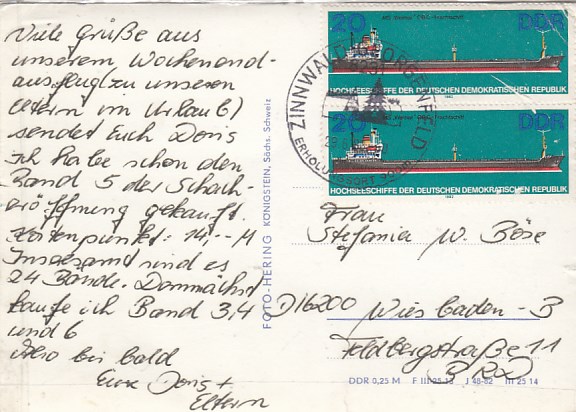 Viele Grüße aus
unserem Wochenend-
ausflug (zu unseren
Eltern im Urlaub)
sendet Euch Doris
ich habe schon den
Band 5 der Schach-
eröffnung gekauft.
Kostenpunkt: 14,-- M
Insgesamt sind es
24 Bände. Demnächst
kaufe ich Band 3,4
und 6
Also bis bald
Eure Doris +
Eltern
FOTO-HERING KÖNIGSTEIN, Sächs. Schweiz
20 DDR
HOCHSEESCHIFFE DER DEUTSCHEN DEMOKRATISCHEN REPUBLIK
1982
20 DDR
HOCHSEESCHIFFE DER DEUTSCHEN DEMOKRATISCHEN REPUBLIK
1982
ZINNWALD-GEORGENFELD
ERHOLUNGSORT
Frau
Stefanie W. Böse
D16200 Wiesbaden-B
Feldbergstraße 11
BRD
DDR 0,25 M F III 25 13 J 48-82 III 25 14